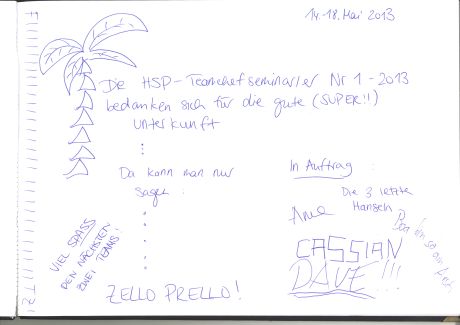 14.-18. Mai 2013
Die HSP-Teamchefseminarler Nr 1 - 2013
bedanken sich für die gute (SUPER!!)
Unterkunft
Da kann man nur
sagen:
ZELLO PRELLO!
VIEL SPASS
DEN NÄCHSTEN
ZWEI TEAMS!
In Auftrag:
Die 3 letzte
Hansen
CASSIAN
DAVE!!!